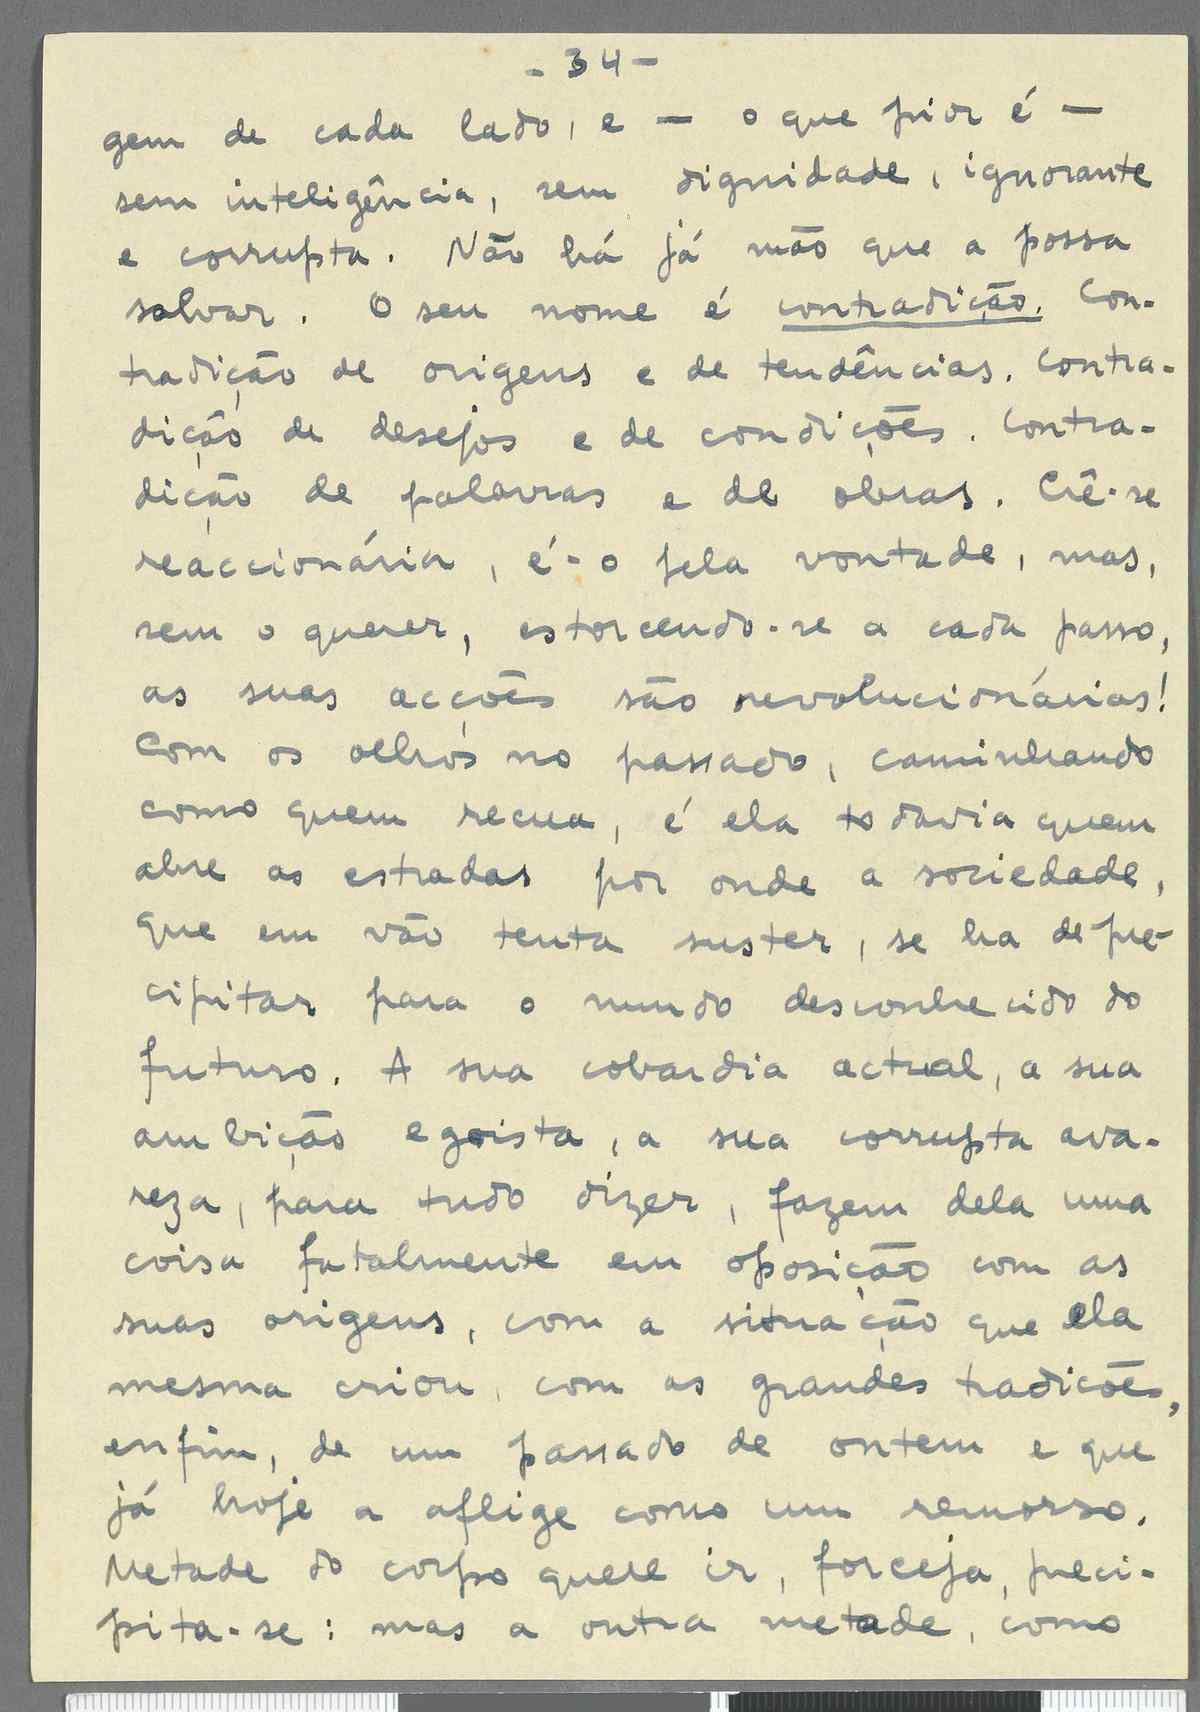 - 34 -
gem de cada lado, e — o que pior é —
sem inteligência, sem dignidade, ignorante
e corrupta. Não há já mão que a possa
salvar. O seu nome é contradição. Con-
tradição de origens e de tendências. Contra-
dição de desejos e de condições. Contra-
dição de palavras e de obras. Crê-se
reaccionária, é-o pela vontade, mas,
sem o querer, estorcendo-se a cada passo,
as suas acções são revolucionárias!
Com os olhos no passado, caminhando
como quem recua, é ela todavia quem
abre as estradas por onde a sociedade,
que em vão tenta suster, se ha de pre-
cipitar para o mundo desconhecido do
futuro. A sua cobardia actual, a sua
ambição egoista, a sua corrupta ava-
reza, para tudo dizer, fazem dela uma
coisa fatalmente em oposição com as
suas origens, com a situação que ela
mesma criou, com as grandes tradicões,
enfim, de um passado de ontem e que
já hoje a aflige como um remorso.
Metade do corpo quere ir, forceja, preci-
pita-se: mas a outra metade, como